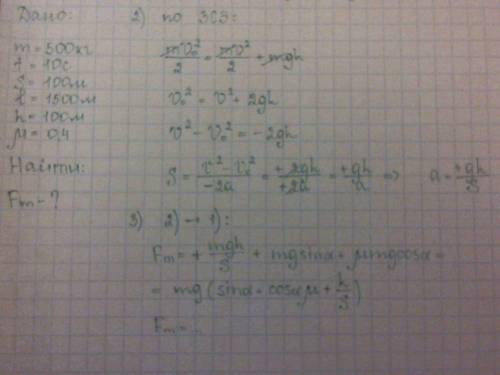 Дано:
m = 500кг
t = 10с
S = 100м
l = 1500м
h = 100м
μ = 0,4
Найти:
Fт - ?
2) по ЗСЭ:
mv₀²/2 = mv²/2 + mgh
v₀² = v² + 2gh
v² - v₀² = -2gh
S = (v² - v₀²)/(-2a) = (+2gh)/(+2a) = +gh/a => a = +gh/S
3) 2) → 1):
Fт = + mgh/S + mgsinα + μmgcosα =
= mg (sinα + cosαμ + h/S)
Fт = ...